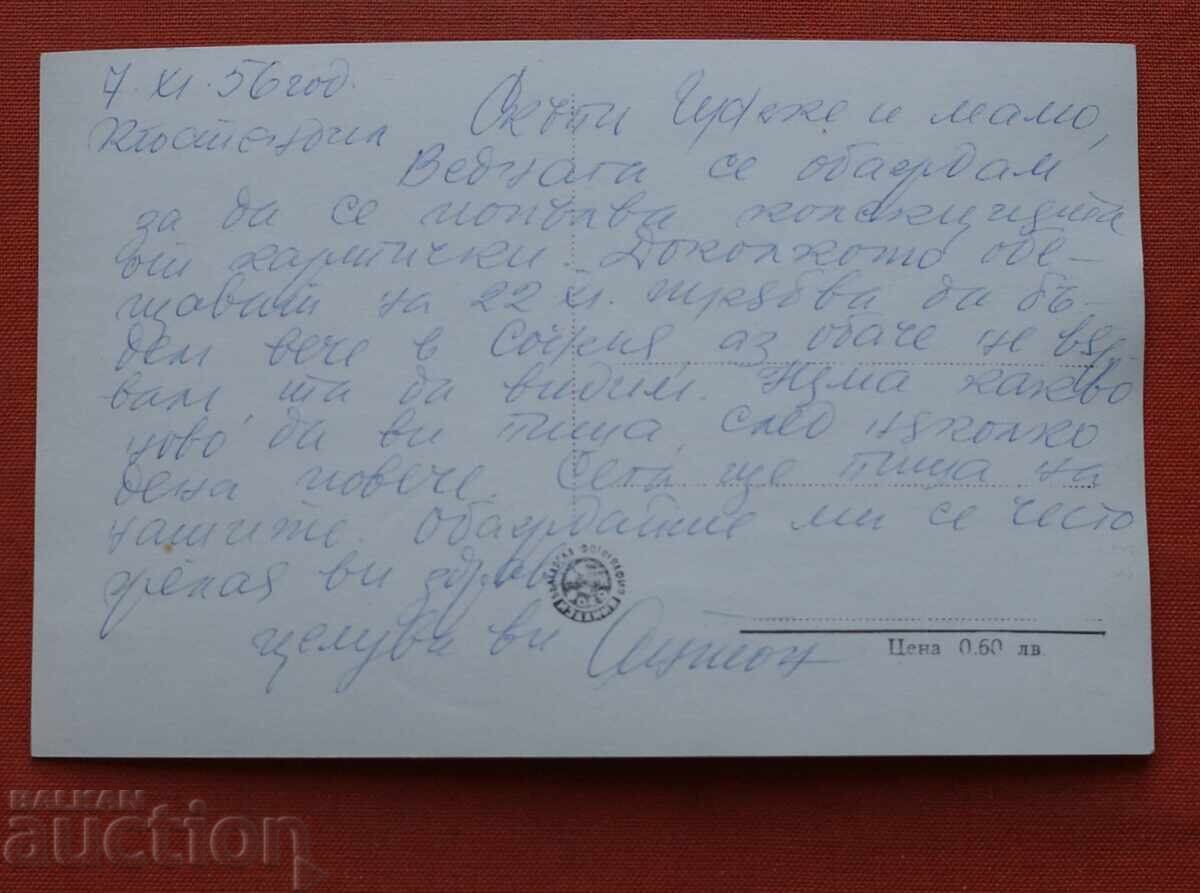 7. XI. 56 год.
Кюстендил
Скъпи и мамо,
Веднага се обаждам
за да се попълва колекцията
от картички. Доколкото обе-
щават на 22 XI. трябва да бъ-
дем вече в София, аз обаче не вяр-
вам, та да видим. Няма какво
ново да ви пиша, след няколко
дена повече. Сега ще пиша на
нашите. Обаждайте ми се често
желая ви здраве
целува ви Антон
БЪЛГАРСКА ФОТОГРАФИЯ
Цена 0.60 лв.
BALKAN
auction